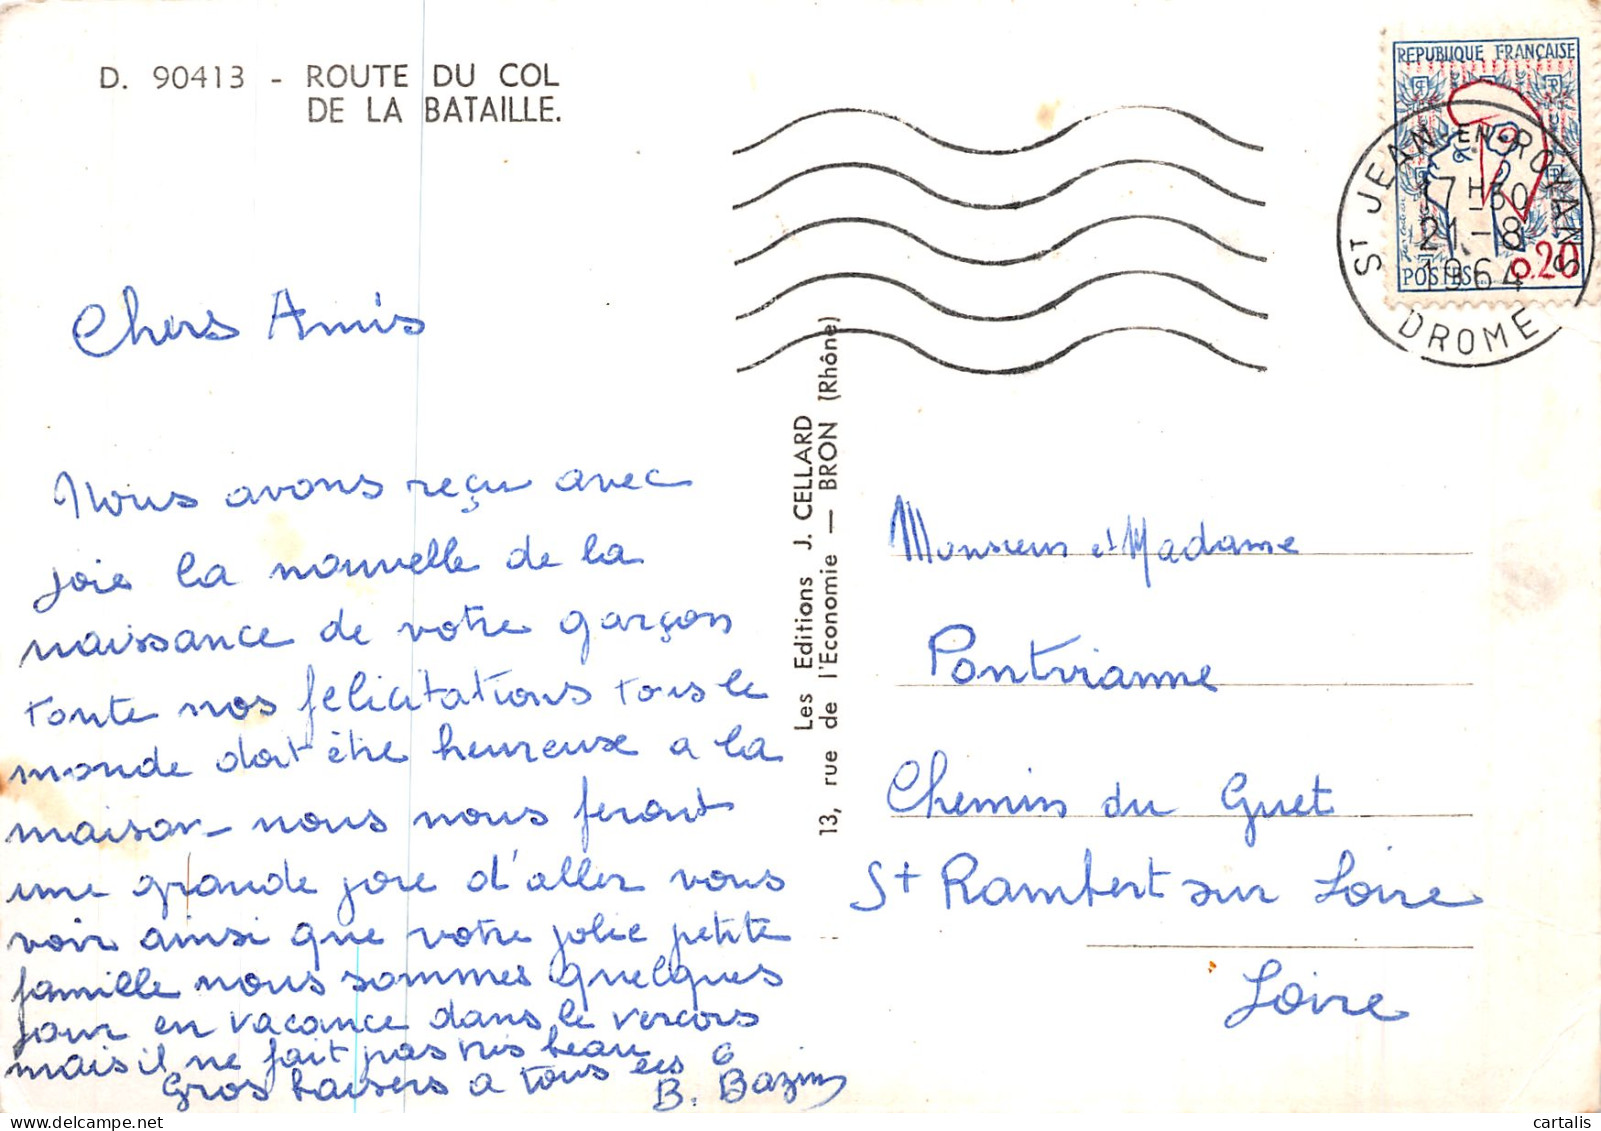 D. 90413 - ROUTE DU COL
DE LA BATAILLE.
Chers Amis
Nous avons reçu avec
joie la nouvelle de la
naissance de votre garçon
toute nos félicitations tous le
monde doit être heureuse a la
maison - nous nous feront
une grande joie d'aller vous
voir ainsi que votre jolie petite
famille nous sommes quelques
jour en vacance dans le vercors
mais il ne fait pas très beau
Gros baisers a tous les 6
B. Bazin
Les Editions J. CELLARD
13, rue de l'Economie — BRON (Rhône)
REPUBLIQUE FRANÇAISE
POSTES
0.20
ST JEAN-EN-ROYANS
17 H 30
21 - 8
1964
DROME
Monsieur et Madame
Pontvianne
Chemin du Guet
St Rambert sur Loire
Loire
cartalis
www.delcampe.net